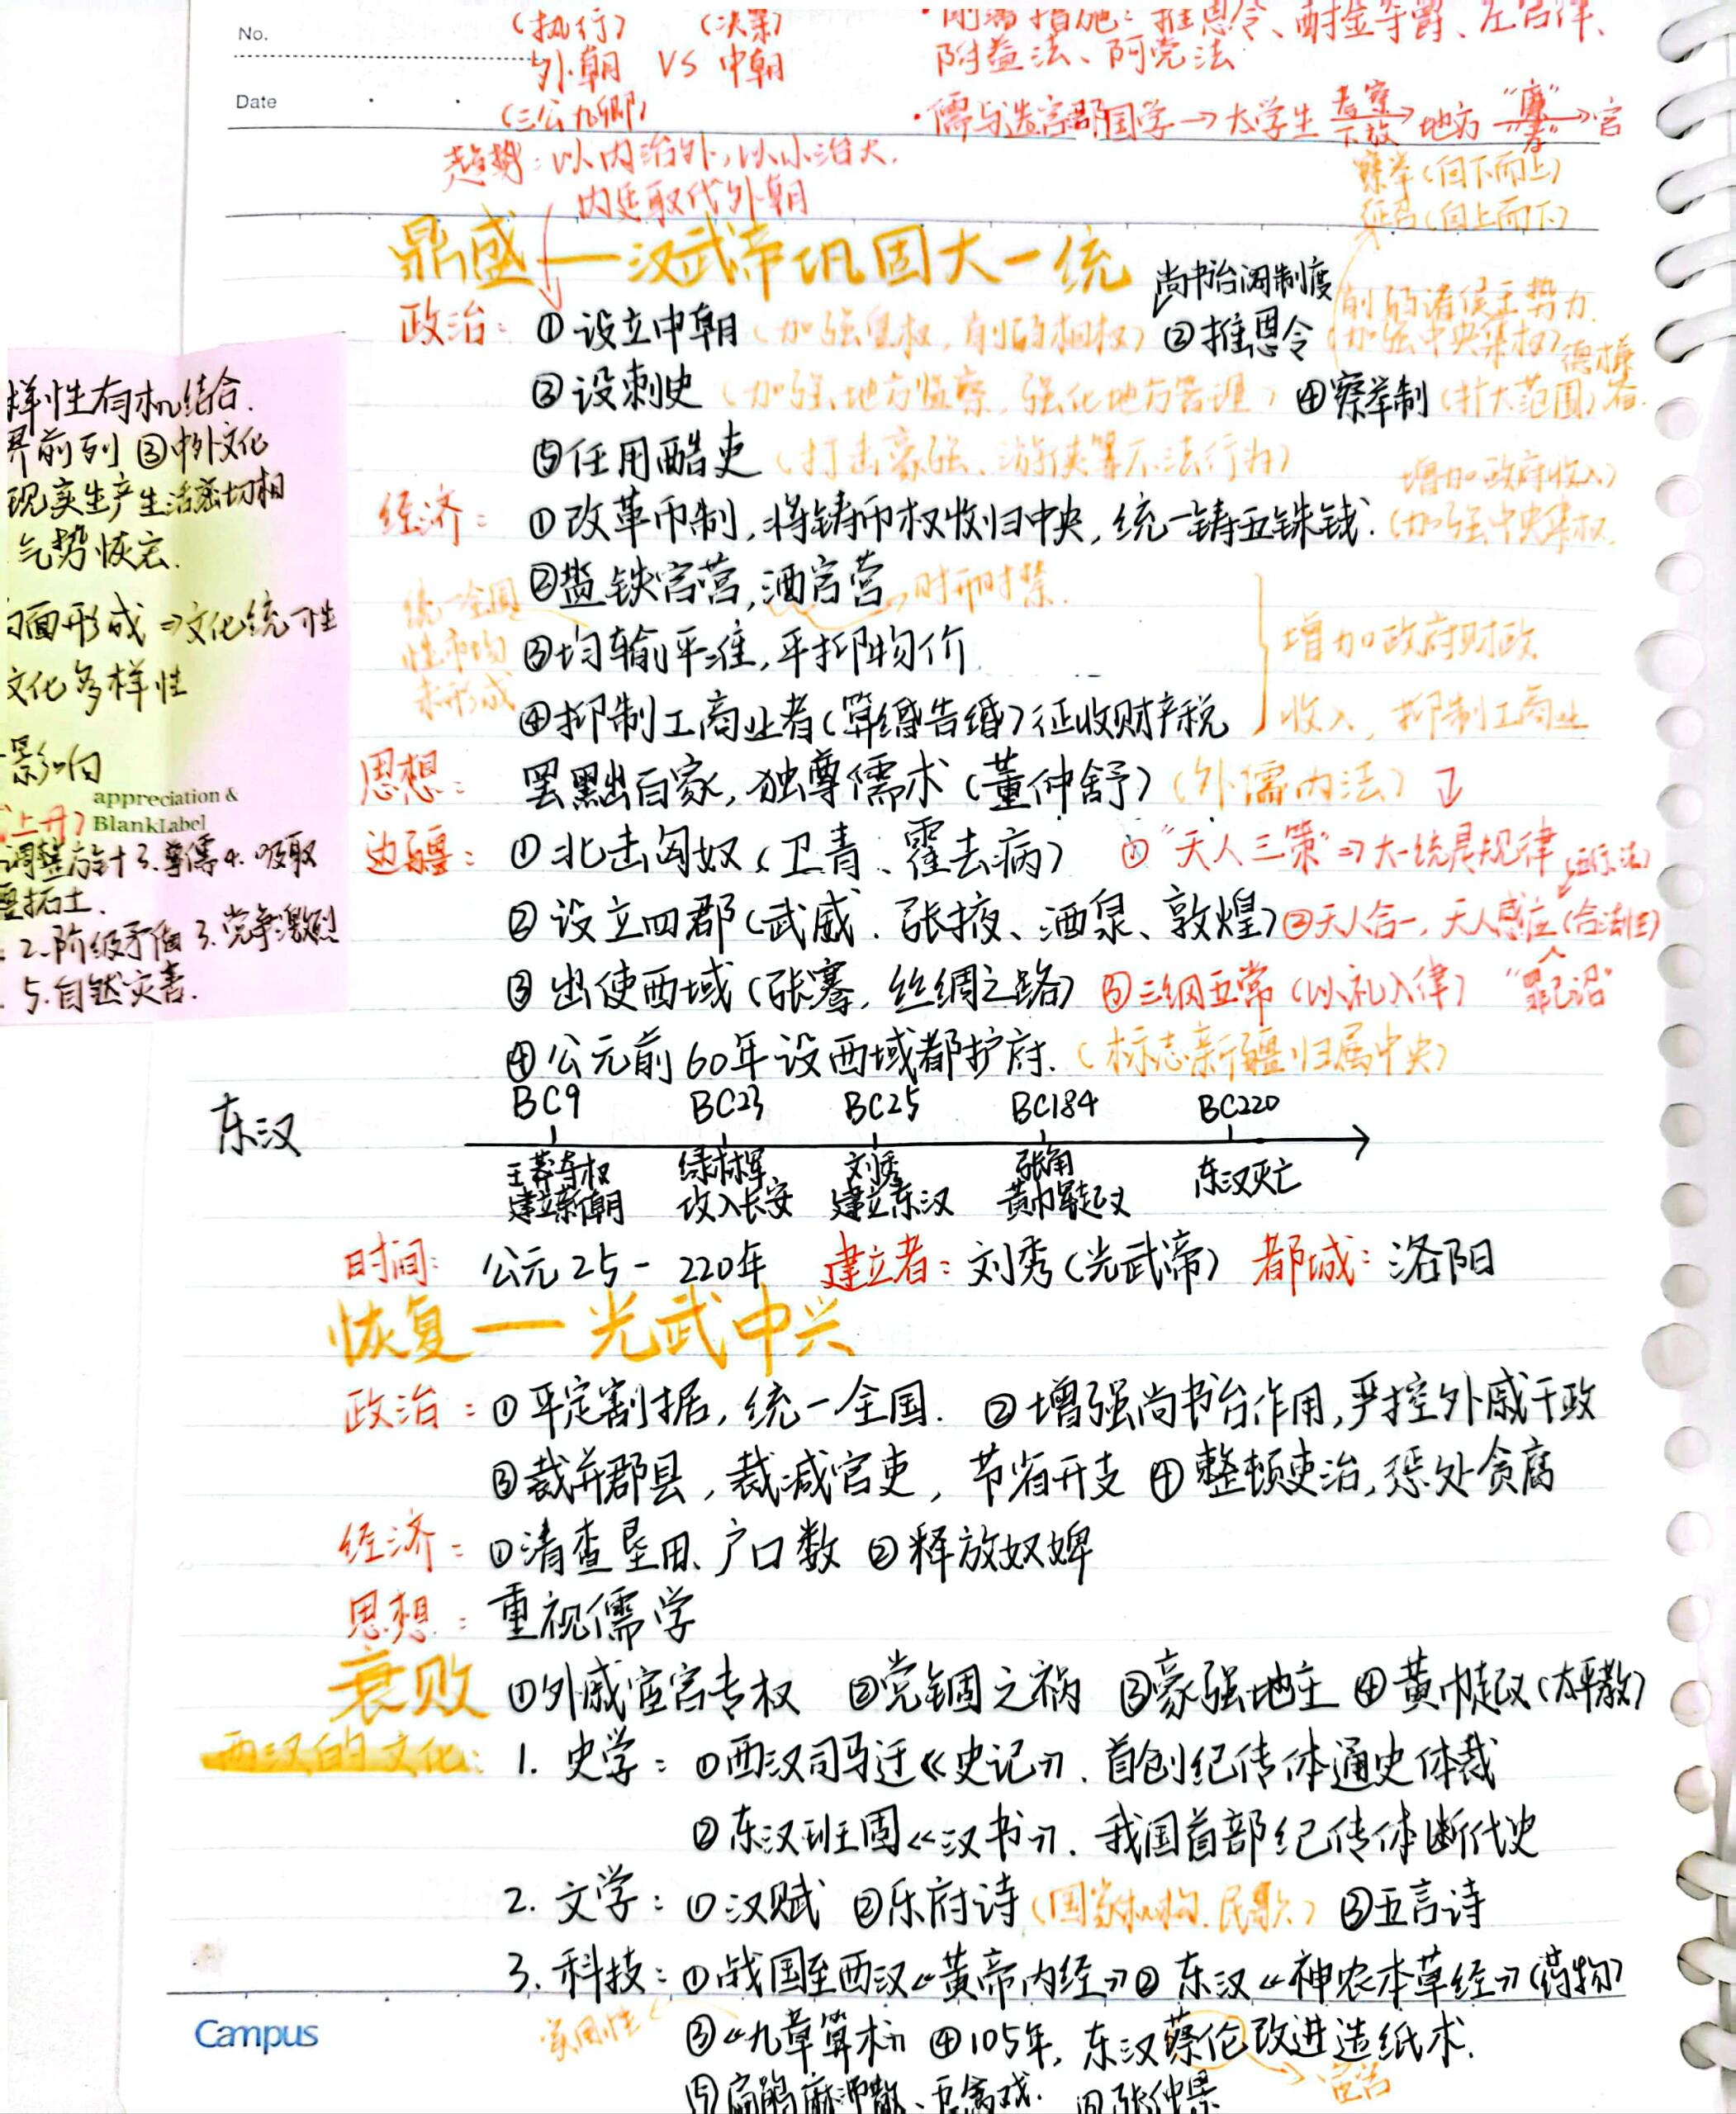 No.
Date
(执行) (决策)
外朝 VS 中朝
(三公九卿)
趋势：以内治外，以小治大.
内廷取代外朝
推恩令、酎金夺爵、左官律、
附益法、阿党法
·儒与选官郡国学→太学生 考察 下放→地方 "廉" "孝"→官
察举(自下而上)
征召(自上而下)
鼎盛—汉武帝巩固大一统
尚书台阁制度
政治：①设立中朝(加强皇权，削弱相权) ②推恩令(削弱诸侯王势力.加强中央集权)
③设刺史(加强地方监察，强化地方管理) ④察举制(扩大范围)
⑤任用酷吏(打击豪强、游侠等不法行为)
经济：①改革币制，将铸币权收归中央，统一铸五铢钱.(加强中央集权.增加政府收入)
②盐铁官营，酒官营→时开时禁.
统一全国性市场未形成
③均输平准，平抑物价
④抑制工商业者(算缗告缗)征收财产税
增加政府财政
收入，抑制工商业
思想：罢黜百家，独尊儒术(董仲舒)(外儒内法)
边疆：①北击匈奴(卫青、霍去病) ①"天人三策"⇒大一统是规律
②设立四郡(武威.张掖、酒泉、敦煌) ②天人合一，天人感应(合法性)
③出使西域(张骞，丝绸之路) ③三纲五常(以礼入律) "罪己诏"
④公元前60年设西域都护府.(标志新疆归属中央)
东汉
BC9 BC23 BC25 BC184 BC220
王莽夺权 绿林军 刘秀 张角 东汉灭亡
建立新朝 攻入长安 建立东汉 黄巾军起义
时间：公元25-220年 建立者：刘秀(光武帝) 都城：洛阳
恢复—光武中兴
政治：①平定割据，统一全国. ②增强尚书台作用，严控外戚干政
③裁并郡县，裁减官吏，节省开支 ④整顿吏治，惩处贪腐
经济：①清查垦田、户口数 ②释放奴婢
思想：重视儒学
衰败 ①外戚宦官专权 ②党锢之祸 ③豪强地主 ④黄巾起义(太平教)
两汉的文化：1. 史学：①西汉司马迁《史记》.首创纪传体通史体裁
②东汉班固《汉书》.我国首部纪传体断代史
2. 文学：①汉赋 ②乐府诗(国家机构.民歌) ③五言诗
3. 科技：①战国至西汉《黄帝内经》② 东汉《神农本草经》(药物)
实用性
③《九章算术》 ④105年，东汉蔡伦改进造纸术.
→宦官
⑤麻沸散、五禽戏. ⑥张仲景
Campus
样性有机结合.
界前列 ③中外文化
现实生产生活密切相
气势恢宏.
面形成⇒文化统一性
文化多样性
影响
appreciation &
BlankLabel
(上升)
调整方针 3.尊儒 4.吸取
疆拓土.
2.阶级矛盾 3.党争激烈
5.自然灾害.